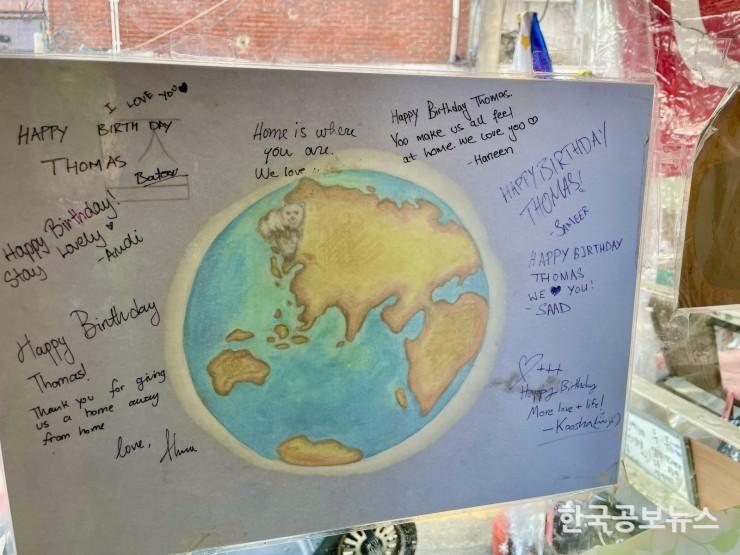 I LOVE YOU
HAPPY BIRTHDAY
THOMAS
Happy Birthday!
Stay Lovely
-Andi
Happy Birthday
Thomas!
Thank you for giving
us a home away
from home
love,
Home is where
you are.
We love
Happy Birthday Thomas.
You make us all feel
at home. We love you
-Haneen
HAPPY BIRTHDAY
THOMAS!
-SAMEER
HAPPY BIRTHDAY
THOMAS
WE ♥ YOU!
-SAAD
♡+++
Happy Birthday
More love + life!
한국공보뉴스